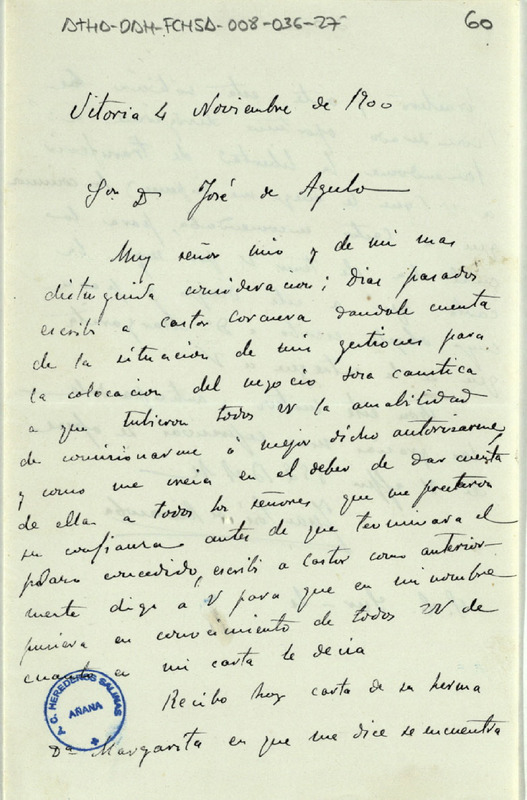 ATHA-DAH-FCHSA-008-036-27
60
Vitoria 4 Noviembre de 1900
Sor. D José de Agulo
Muy señor mio y de mi mas
distinguida consideracion; Dias pasados
escribi a Castor Corcuera dandole cuenta
de la situacion de mis gestiones para
la colocacion del negocio Sosa caustica
a que tubieron todos VV la amabilidad
de comisionarme o mejor dicho autorizarme,
y como me creia en el deber de dar cuenta
de ellas a todos los señores que me prestaron
su confianza antes de que terminara el
plazo concedido, escribi a Castor como anterior-
mente digo a V para que en mi nombre
pusiera en conocimiento de todos VV de
cuanto en mi carta le decia
Recibo hoy carta de su herma
Da Margarita en que me dice se encuentra
P. C. HEREDEROS SALINAS
AÑANA